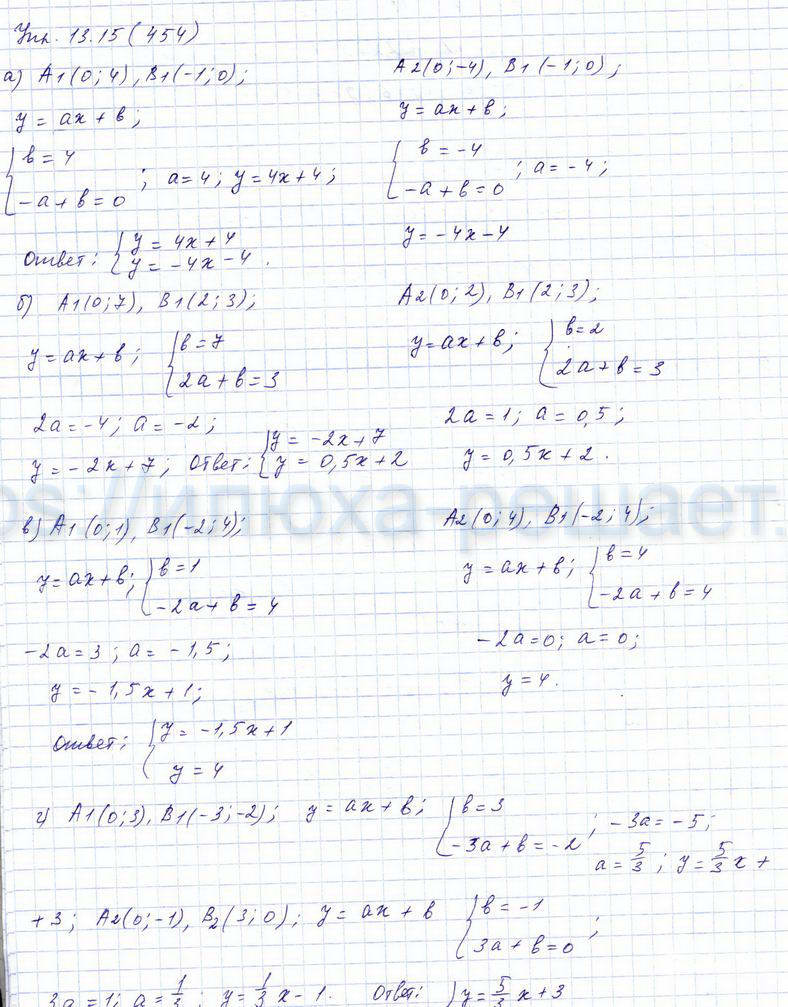 Упр. 13.15 (454)
а) A1(0;4), B1(-1;0);
y = ax + b;
{ b = 4
-a + b = 0 ; a = 4; y = 4x + 4;
Ответ: { y = 4x + 4
y = -4x - 4 .
A2(0;-4), B1(-1;0);
y = ax + b;
{ b = -4
-a + b = 0 ; a = -4;
y = -4x - 4
б) A1(0;7), B1(2;3);
y = ax + b; { b = 7
2a + b = 3
2a = -4; a = -2;
y = -2x + 7; Ответ: { y = -2x + 7
y = 0,5x + 2
A2(0;2), B1(2;3);
y = ax + b; { b = 2
2a + b = 3
2a = 1; a = 0,5;
y = 0,5x + 2.
ps://илюха-решает.
в) A1(0;1), B1(-2;4);
y = ax + b; { b = 1
-2a + b = 4
-2a = 3; a = -1,5;
y = -1,5x + 1;
Ответ: { y = -1,5x + 1
y = 4
A2(0;4), B1(-2;4);
y = ax + b; { b = 4
-2a + b = 4
-2a = 0; a = 0;
y = 4.
г) A1(0;3), B1(-3;-2); y = ax + b; { b = 3
-3a + b = -2 ; -3a = -5;
a = 5/3; y = 5/3 x +
+ 3; A2(0;-1), B2(3;0); y = ax + b { b = -1
3a + b = 0 ;
3a = 1; a = 1/3; y = 1/3 x - 1. Ответ: { y = 5/3 x + 3